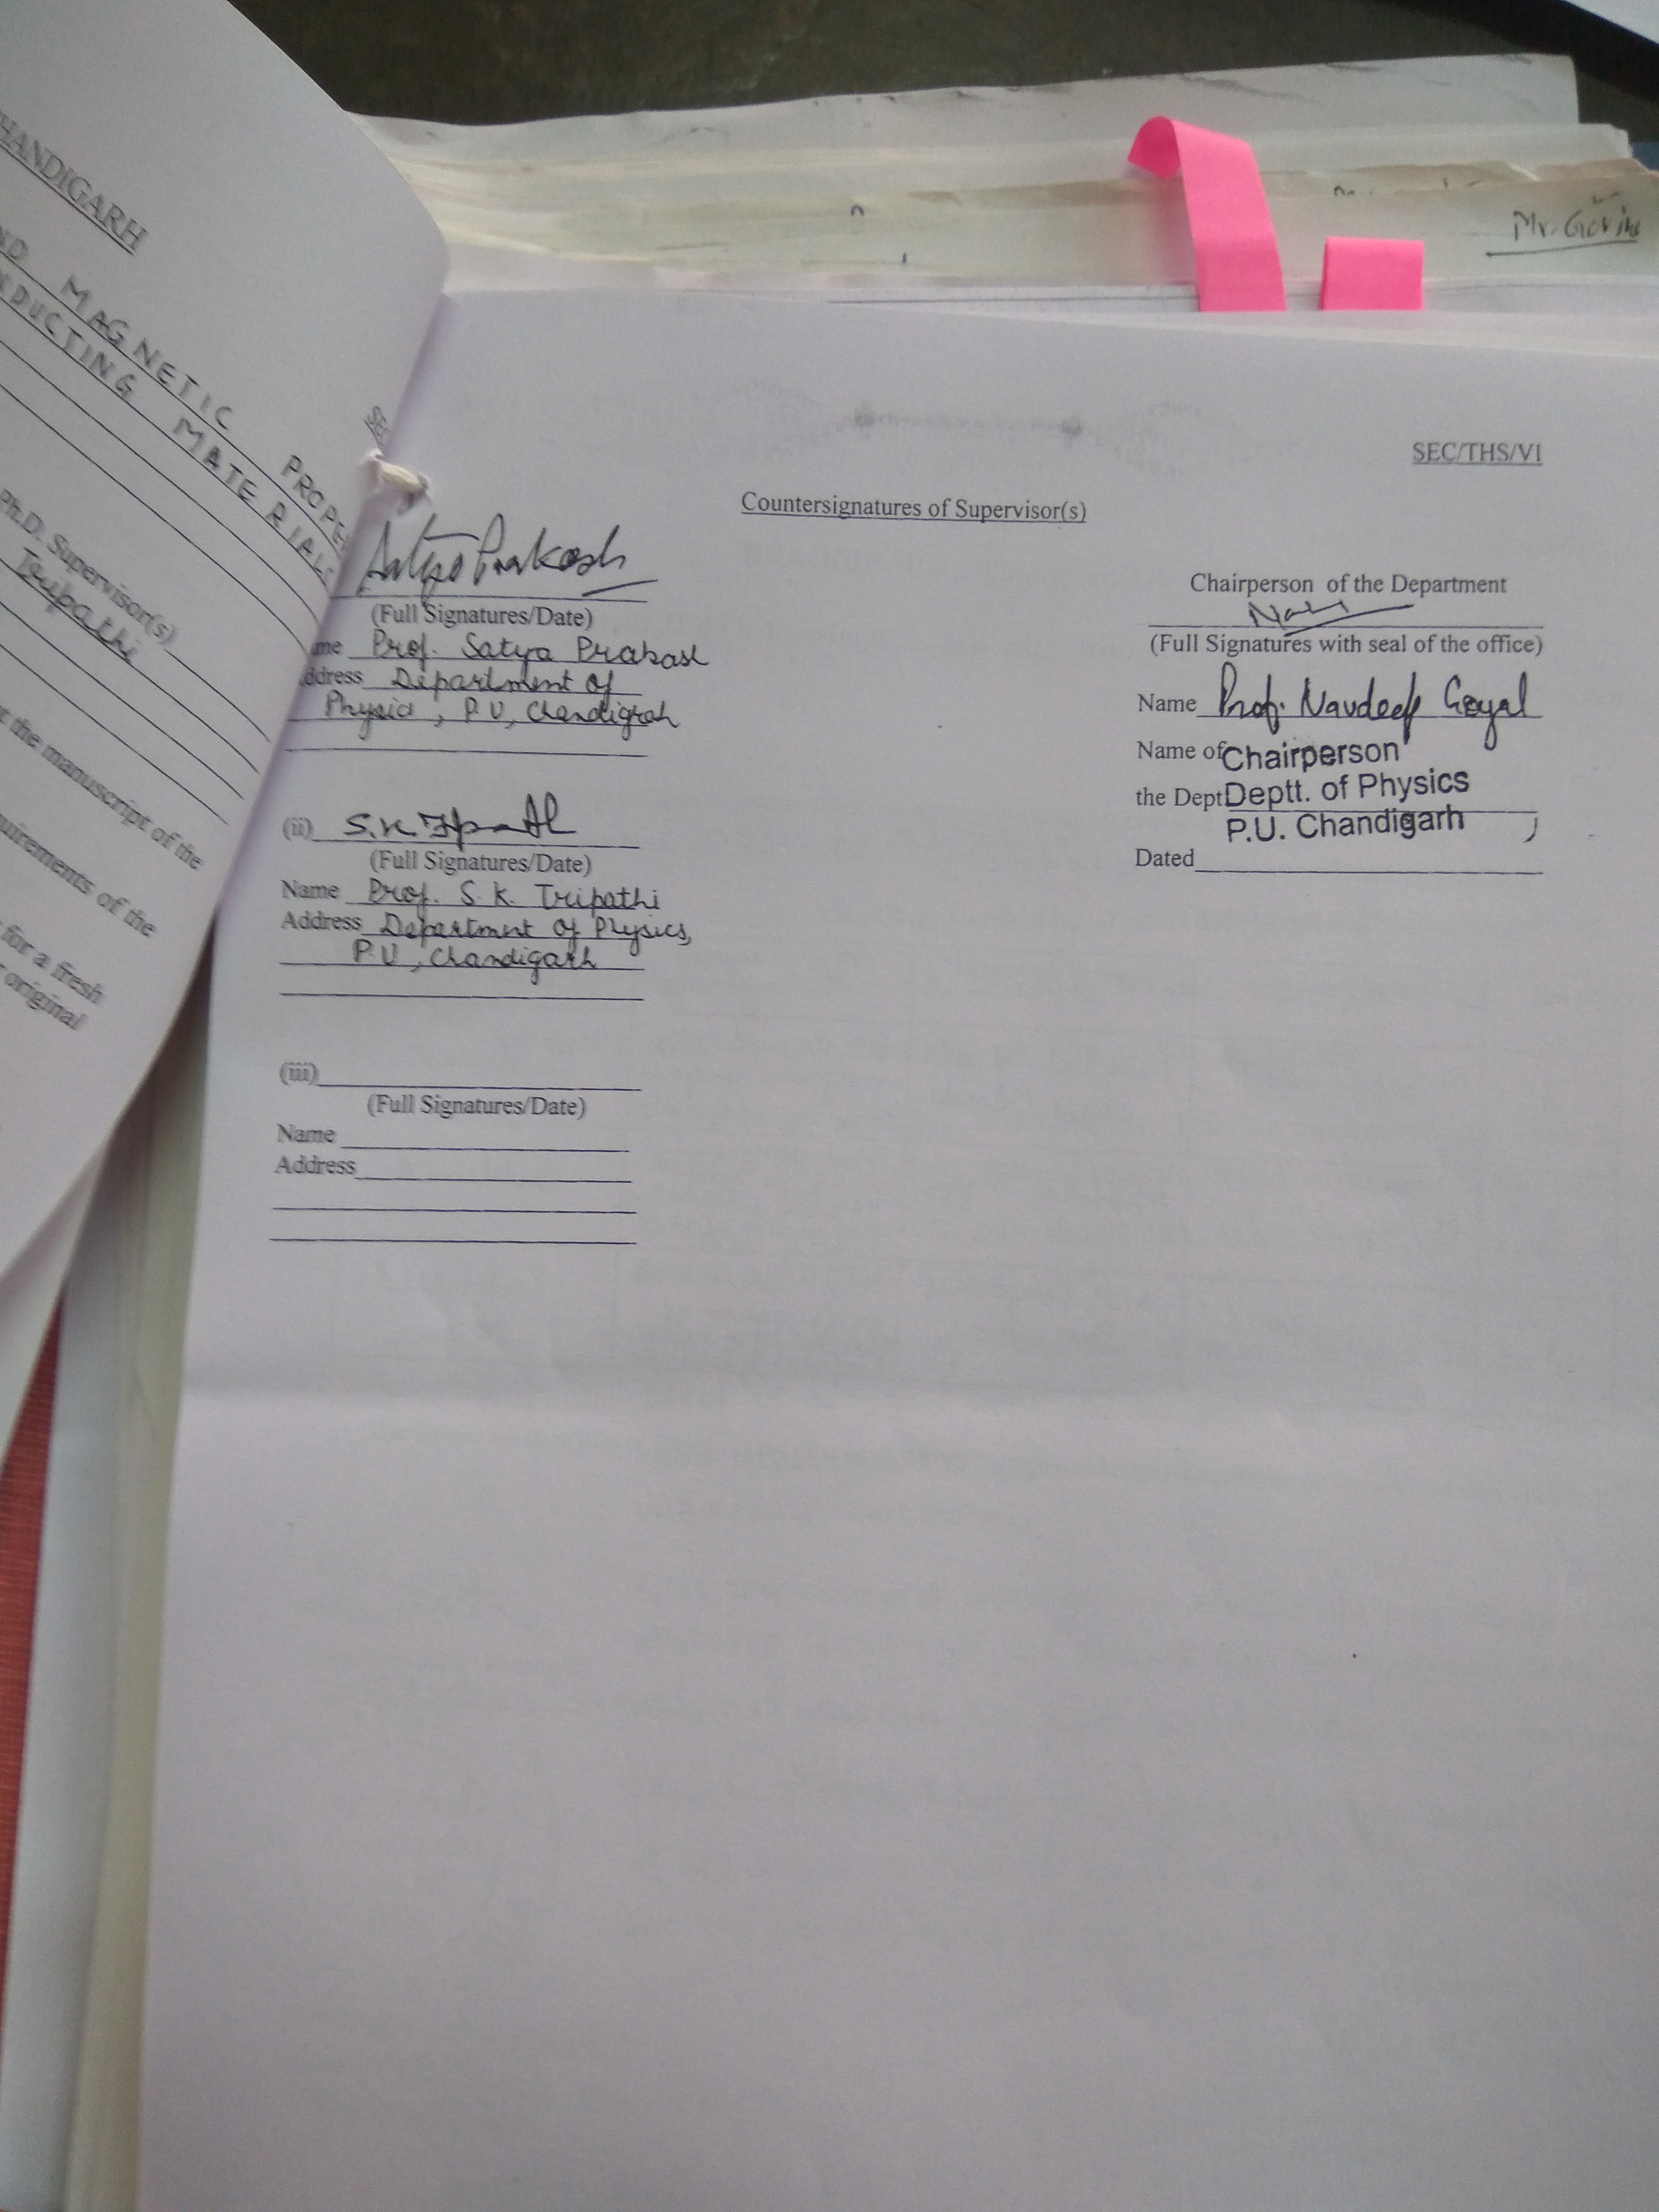 HANDIGARH
MAGNETIC PROPE
DUCTING MATERIALS
Ph.D. Supervisor(s)
Tripathi
the manuscript of the
uirements of the
for a fresh
original
Mr. Govind
SEC/THS/VI
Countersignatures of Supervisor(s)
Satya Prakash
(Full Signatures/Date)
me Prof. Satya Prakash
ddress Department of
Physics, P.U, Chandigrah
(ii) S.K. Tripathi
(Full Signatures/Date)
Name Prof. S. K. Tripathi
Address Department of Physics,
P.U, Chandigarh
(iii)
(Full Signatures/Date)
Name
Address
Chairperson of the Department
(Full Signatures with seal of the office)
Name Prof. Navdeep Goyal
Name of Chairperson
the Dept Deptt. of Physics
P.U. Chandigarh
Dated